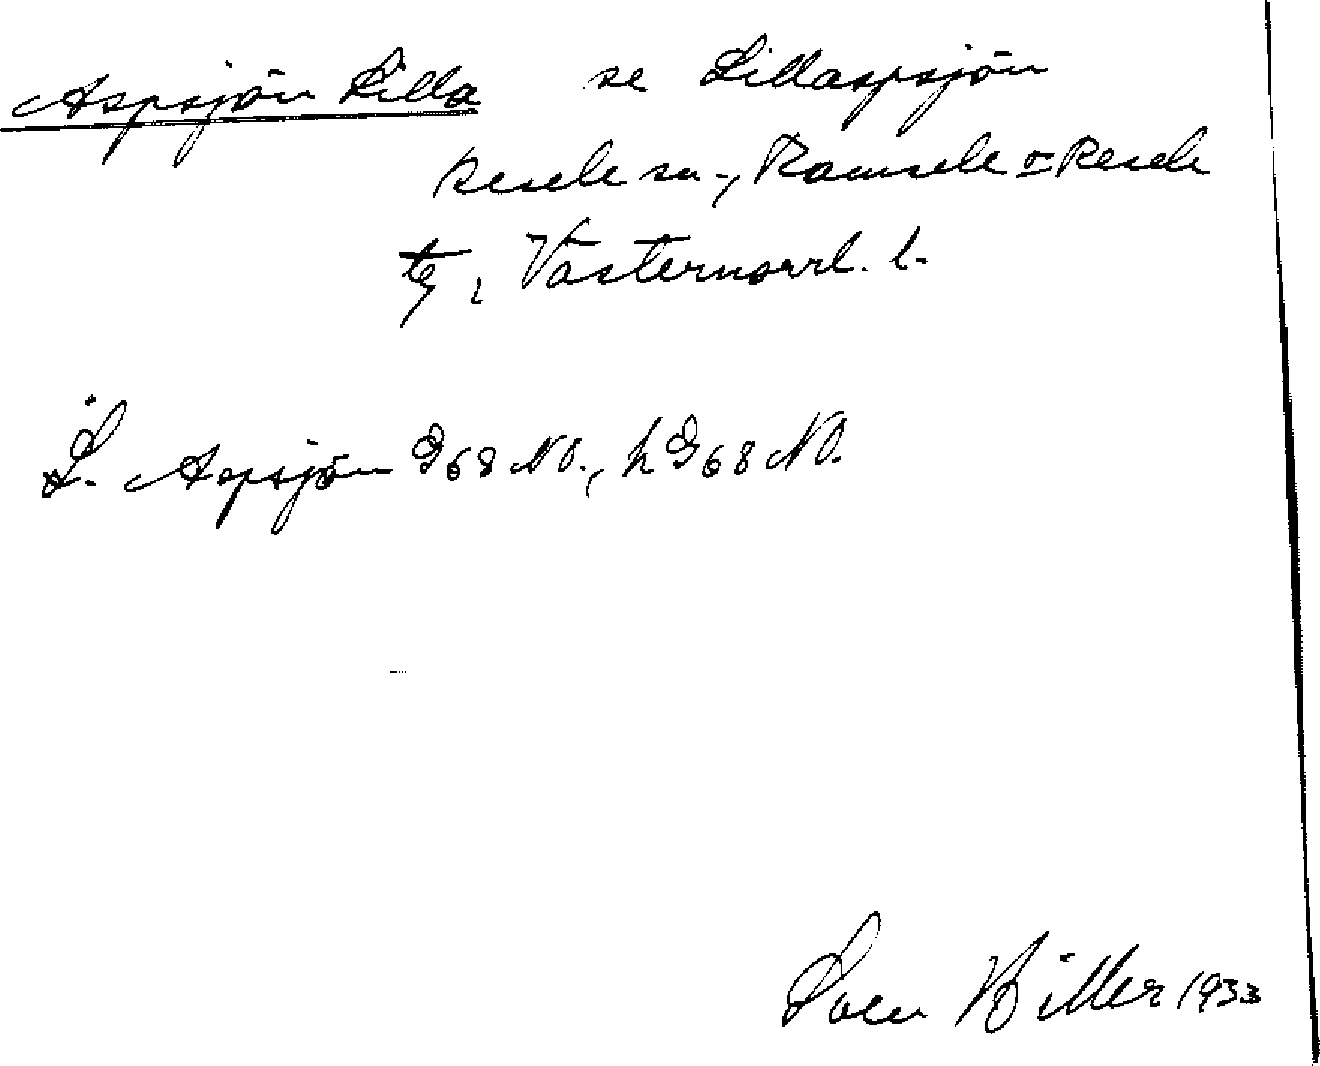 Aspsjön Lilla se Lillaspsjön
Resele sn., Ramsele o Resele
tg, Västernorrl. l.
L. Aspsjön G68 NO., h G68 NO.
Sven Biller 1933